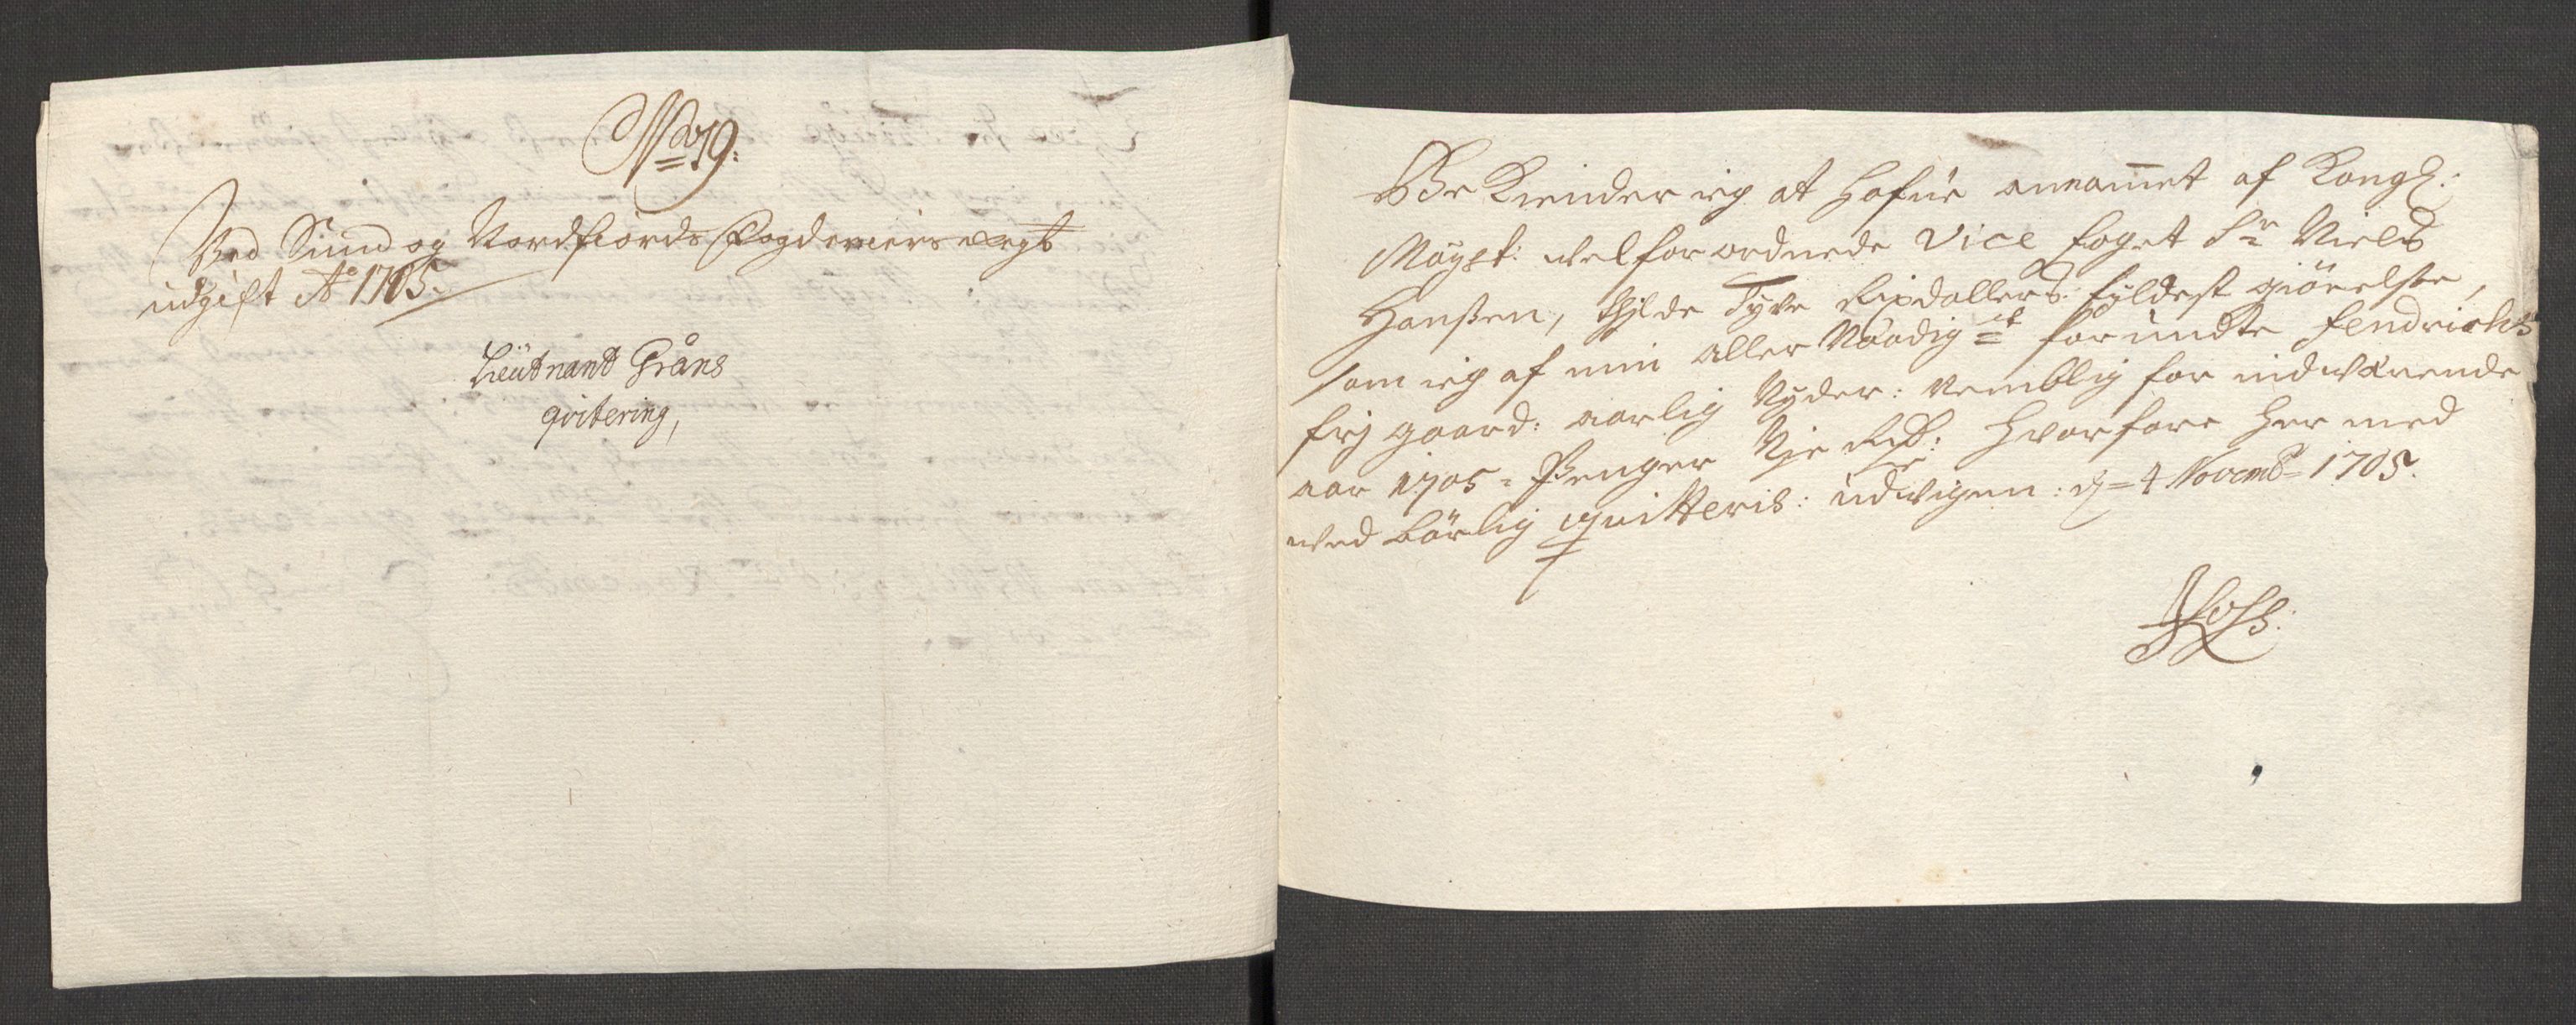 No 19:
Ved Sund og Nordfiords Fogderiers regt
udgift Ao 1705.
Lieutnant Gråns
qvitering,
Be Kiender ieg at hafue annammet af Kongl:
Mayst: vel for ordnede Vice foget Sr Niels
Hanssen, Tyve Rixdallers fyldest giörelsse,
som ieg af min aller Naadigst for undte fendrichs
frj gaard: aarlig Nyder: nemblig for indværende
aar 1705 - Penger Rdr: hvorfore her med
ved börlig quitteris: udvigen: d= 4 Novemb= 1705.